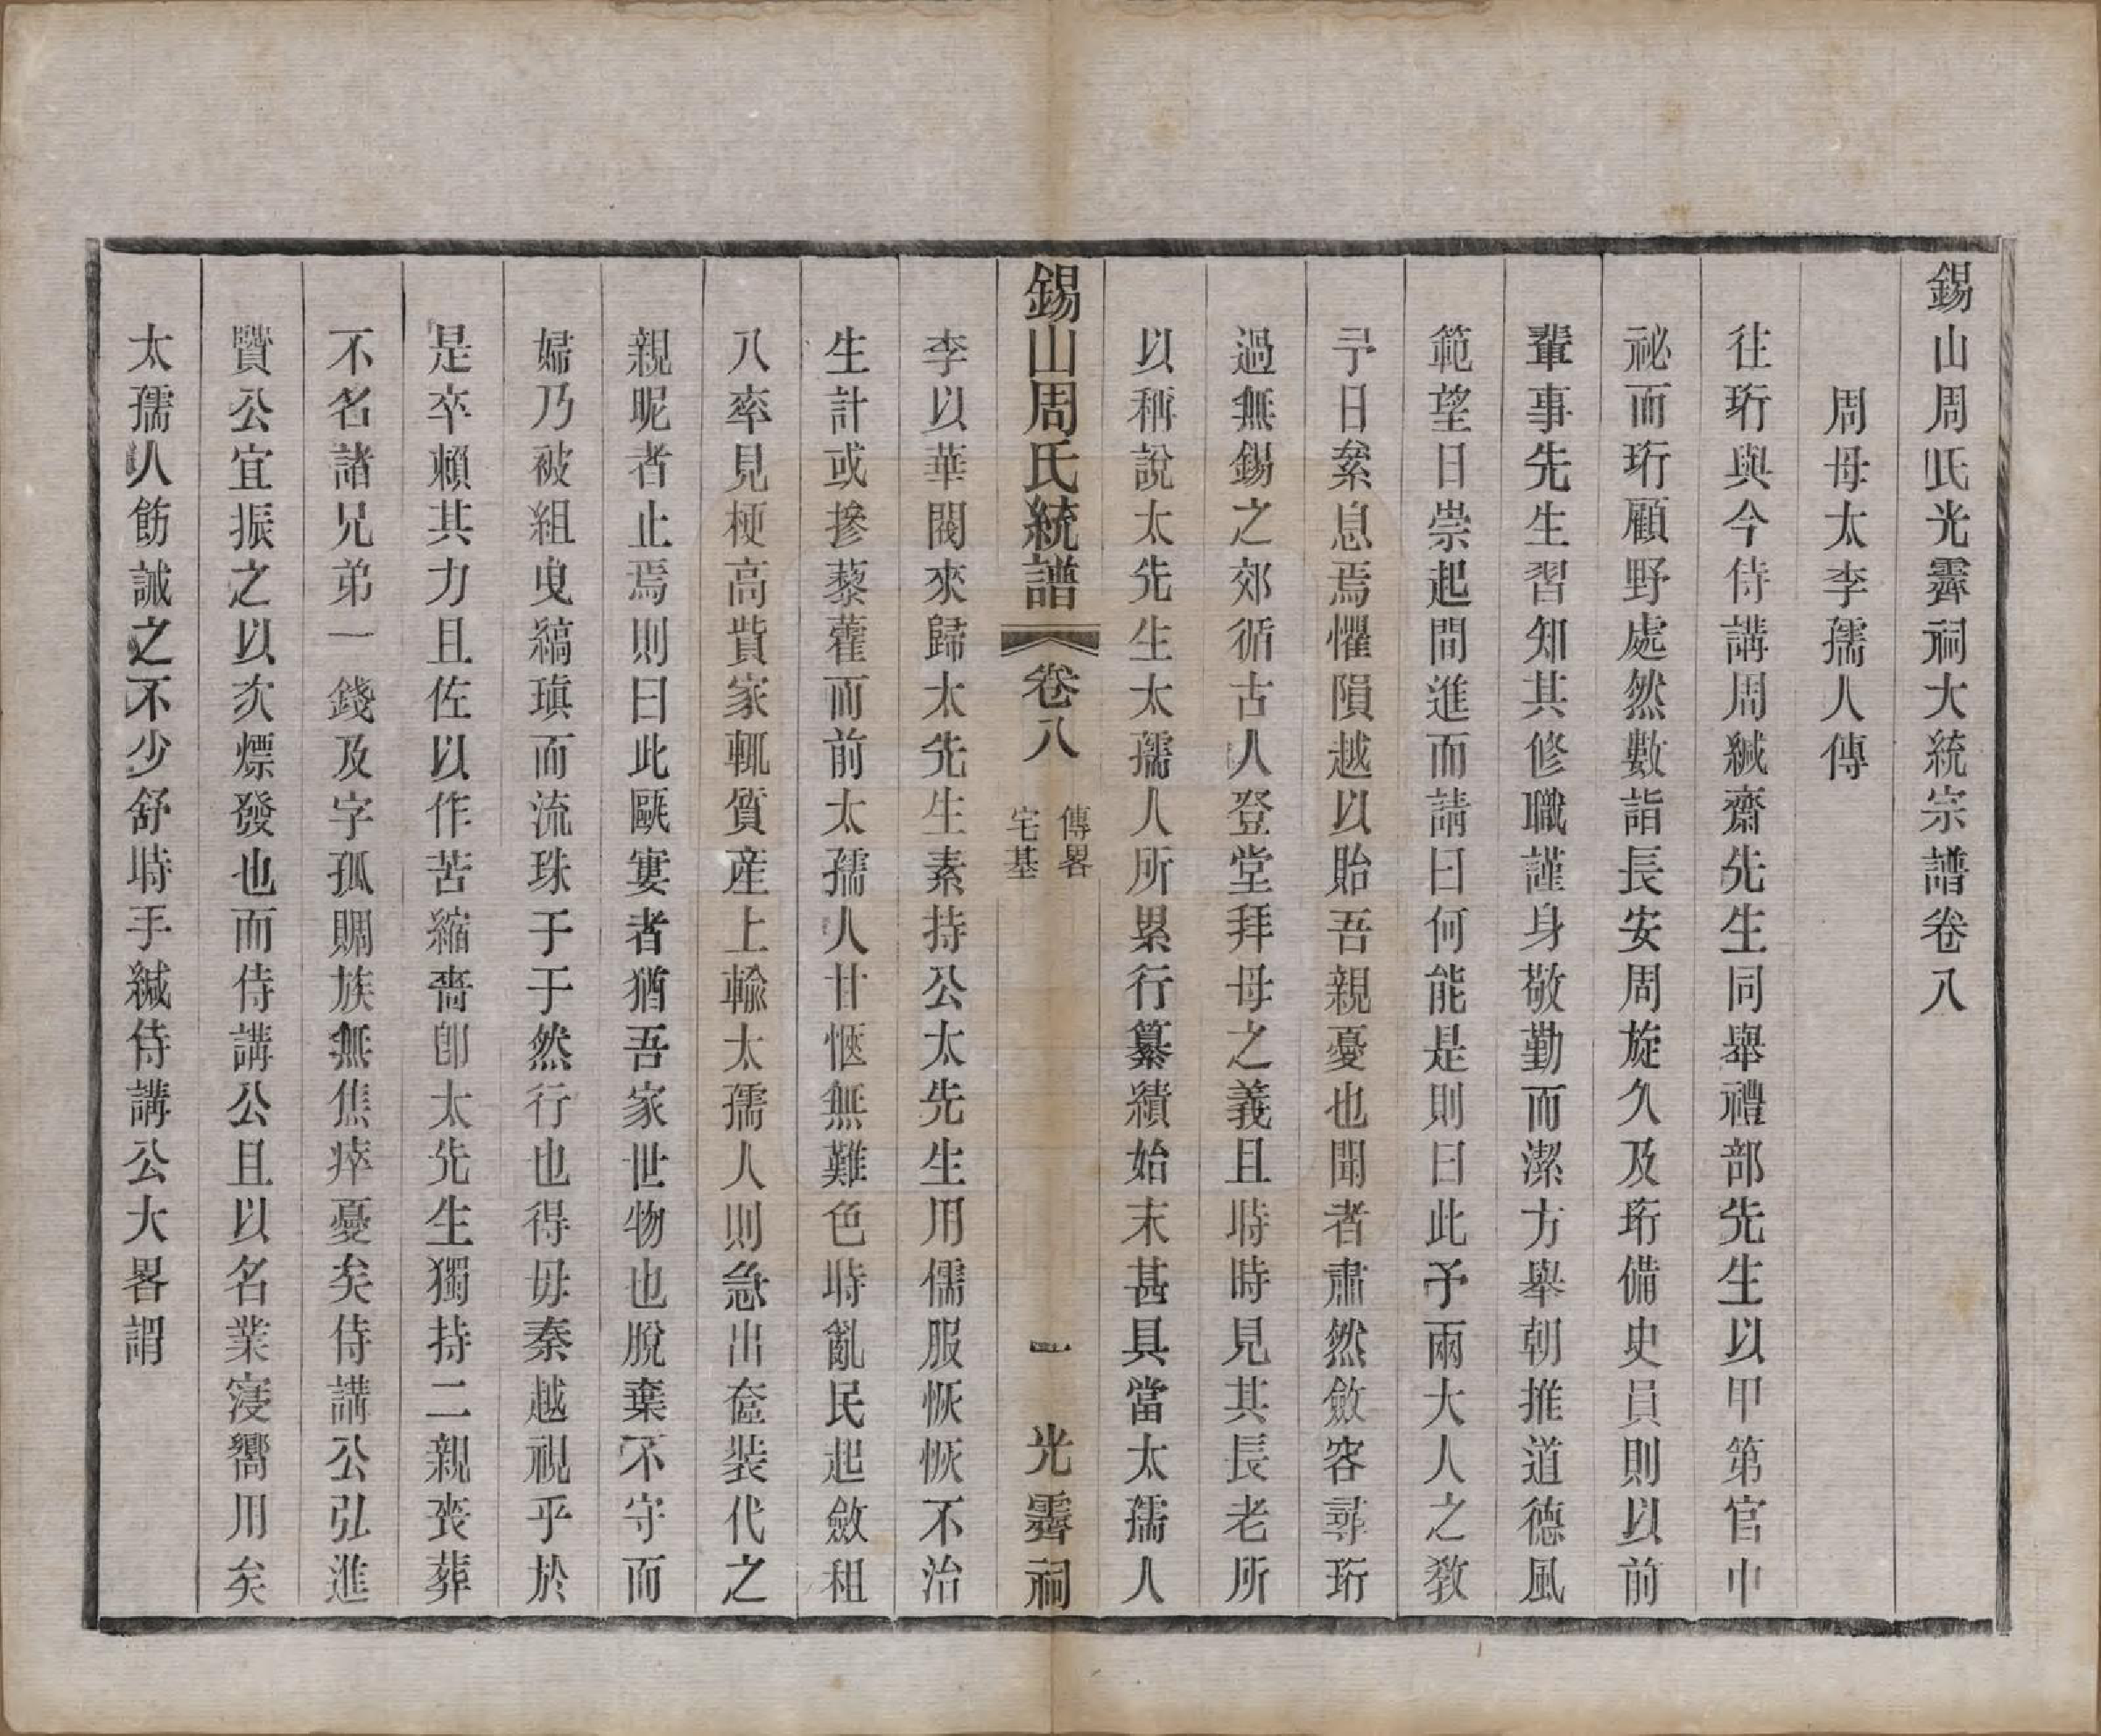 錫山周氏光霽祠大統宗譜卷八
周母太李孺人傳
往珩與今侍講周緘齋先生同舉禮部先生以甲第官中
祕而珩顧野處然數詣長安周旋久及珩備史員則以前
輩事先生習知其修職謹身敬勤而潔方舉朝推道德風
範望日崇起間進而請曰何能是則曰此予兩大人之教
予日絫息焉懼隕越以貽吾親憂也聞者肅然斂容尋珩
過無錫之郊循古人登堂拜母之義且時時見其長老所
以稱說太先生太孺人所累行纂績始末甚具當太孺人
錫山周氏統譜 卷八 傳畧 宅基 一 光霽祠
李以華閥來歸太先生素持公太先生用儒服恢恢不治
生計或摻藜藿而前太孺人甘愜無難色時亂民起斂租
八率見梗高貲家輒質產上輸太孺人則急出奩裝代之
親昵者止焉則曰此甌窶者猶吾家世物也脫棄不守而
婦乃被組曳縞瑱而流珠于于然行也得毋秦越視乎於
是卒賴其力且佐以作苦縮嗇卽太先生獨持二親喪葬
不名諸兄弟一錢及字孤賙族無焦瘁憂矣侍講公弘進
贒公宜振之以次熛發也而侍講公且以名業寖嚮用矣
太孺人飭誡之不少舒時手緘侍講公大畧謂